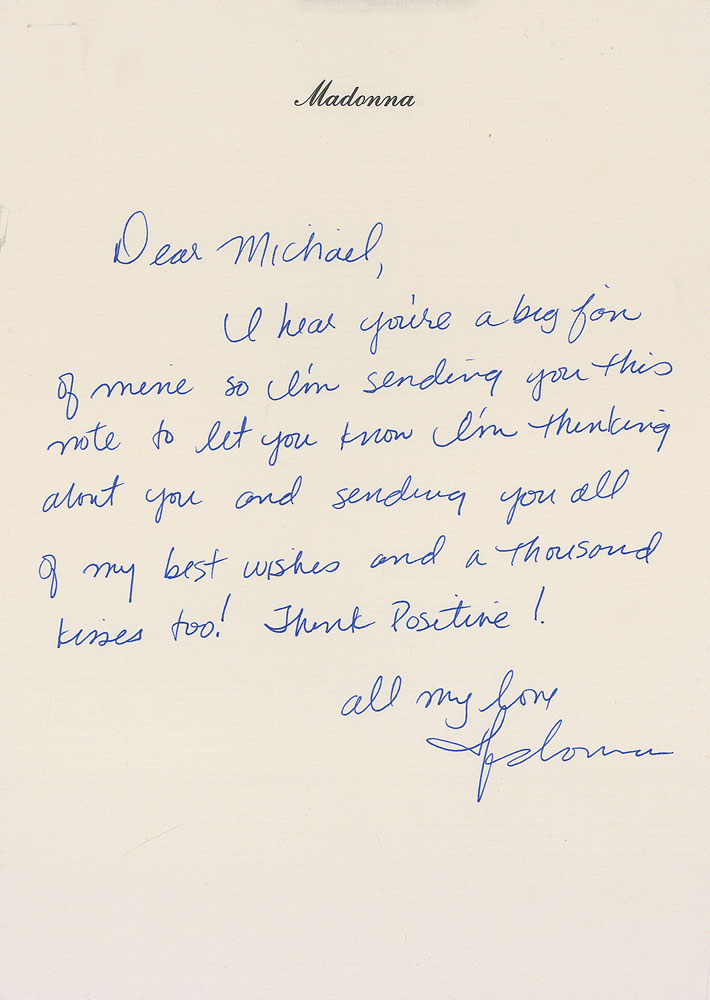 Madonna
Dear Michael,
I hear you're a big fan
of mine so I'm sending you this
note to let you know I'm thinking
about you and sending you all
of my best wishes and a thousand
kisses too! Think Positive!
all my love
Madonna